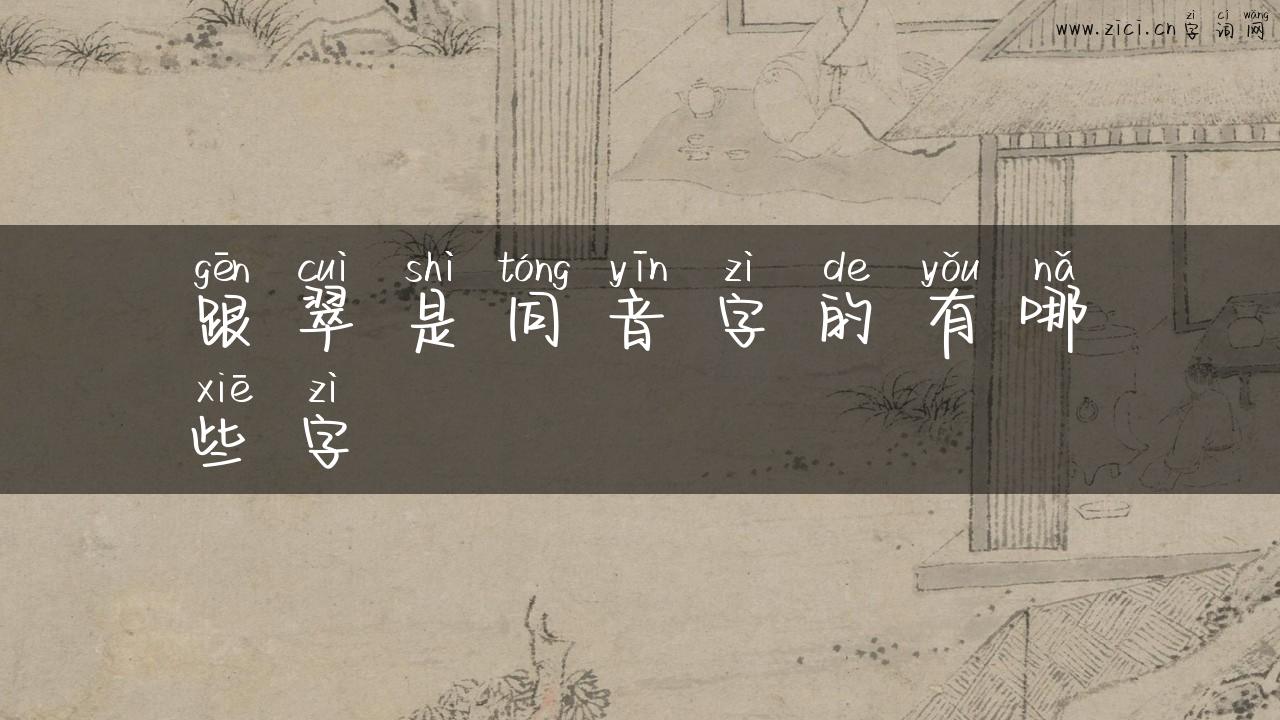 zì cí wǎng
www.zici.cn 字 词 网
gēn cuì shì tóng yīn zì de yǒu nǎ
跟 翠 是 同 音 字 的 有 哪
xiē zì
些 字